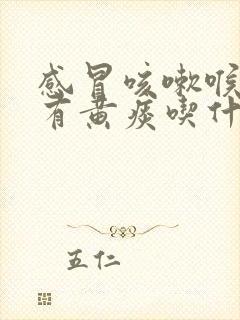 感冒咳嗽喉
有黄痰喫什
五仁